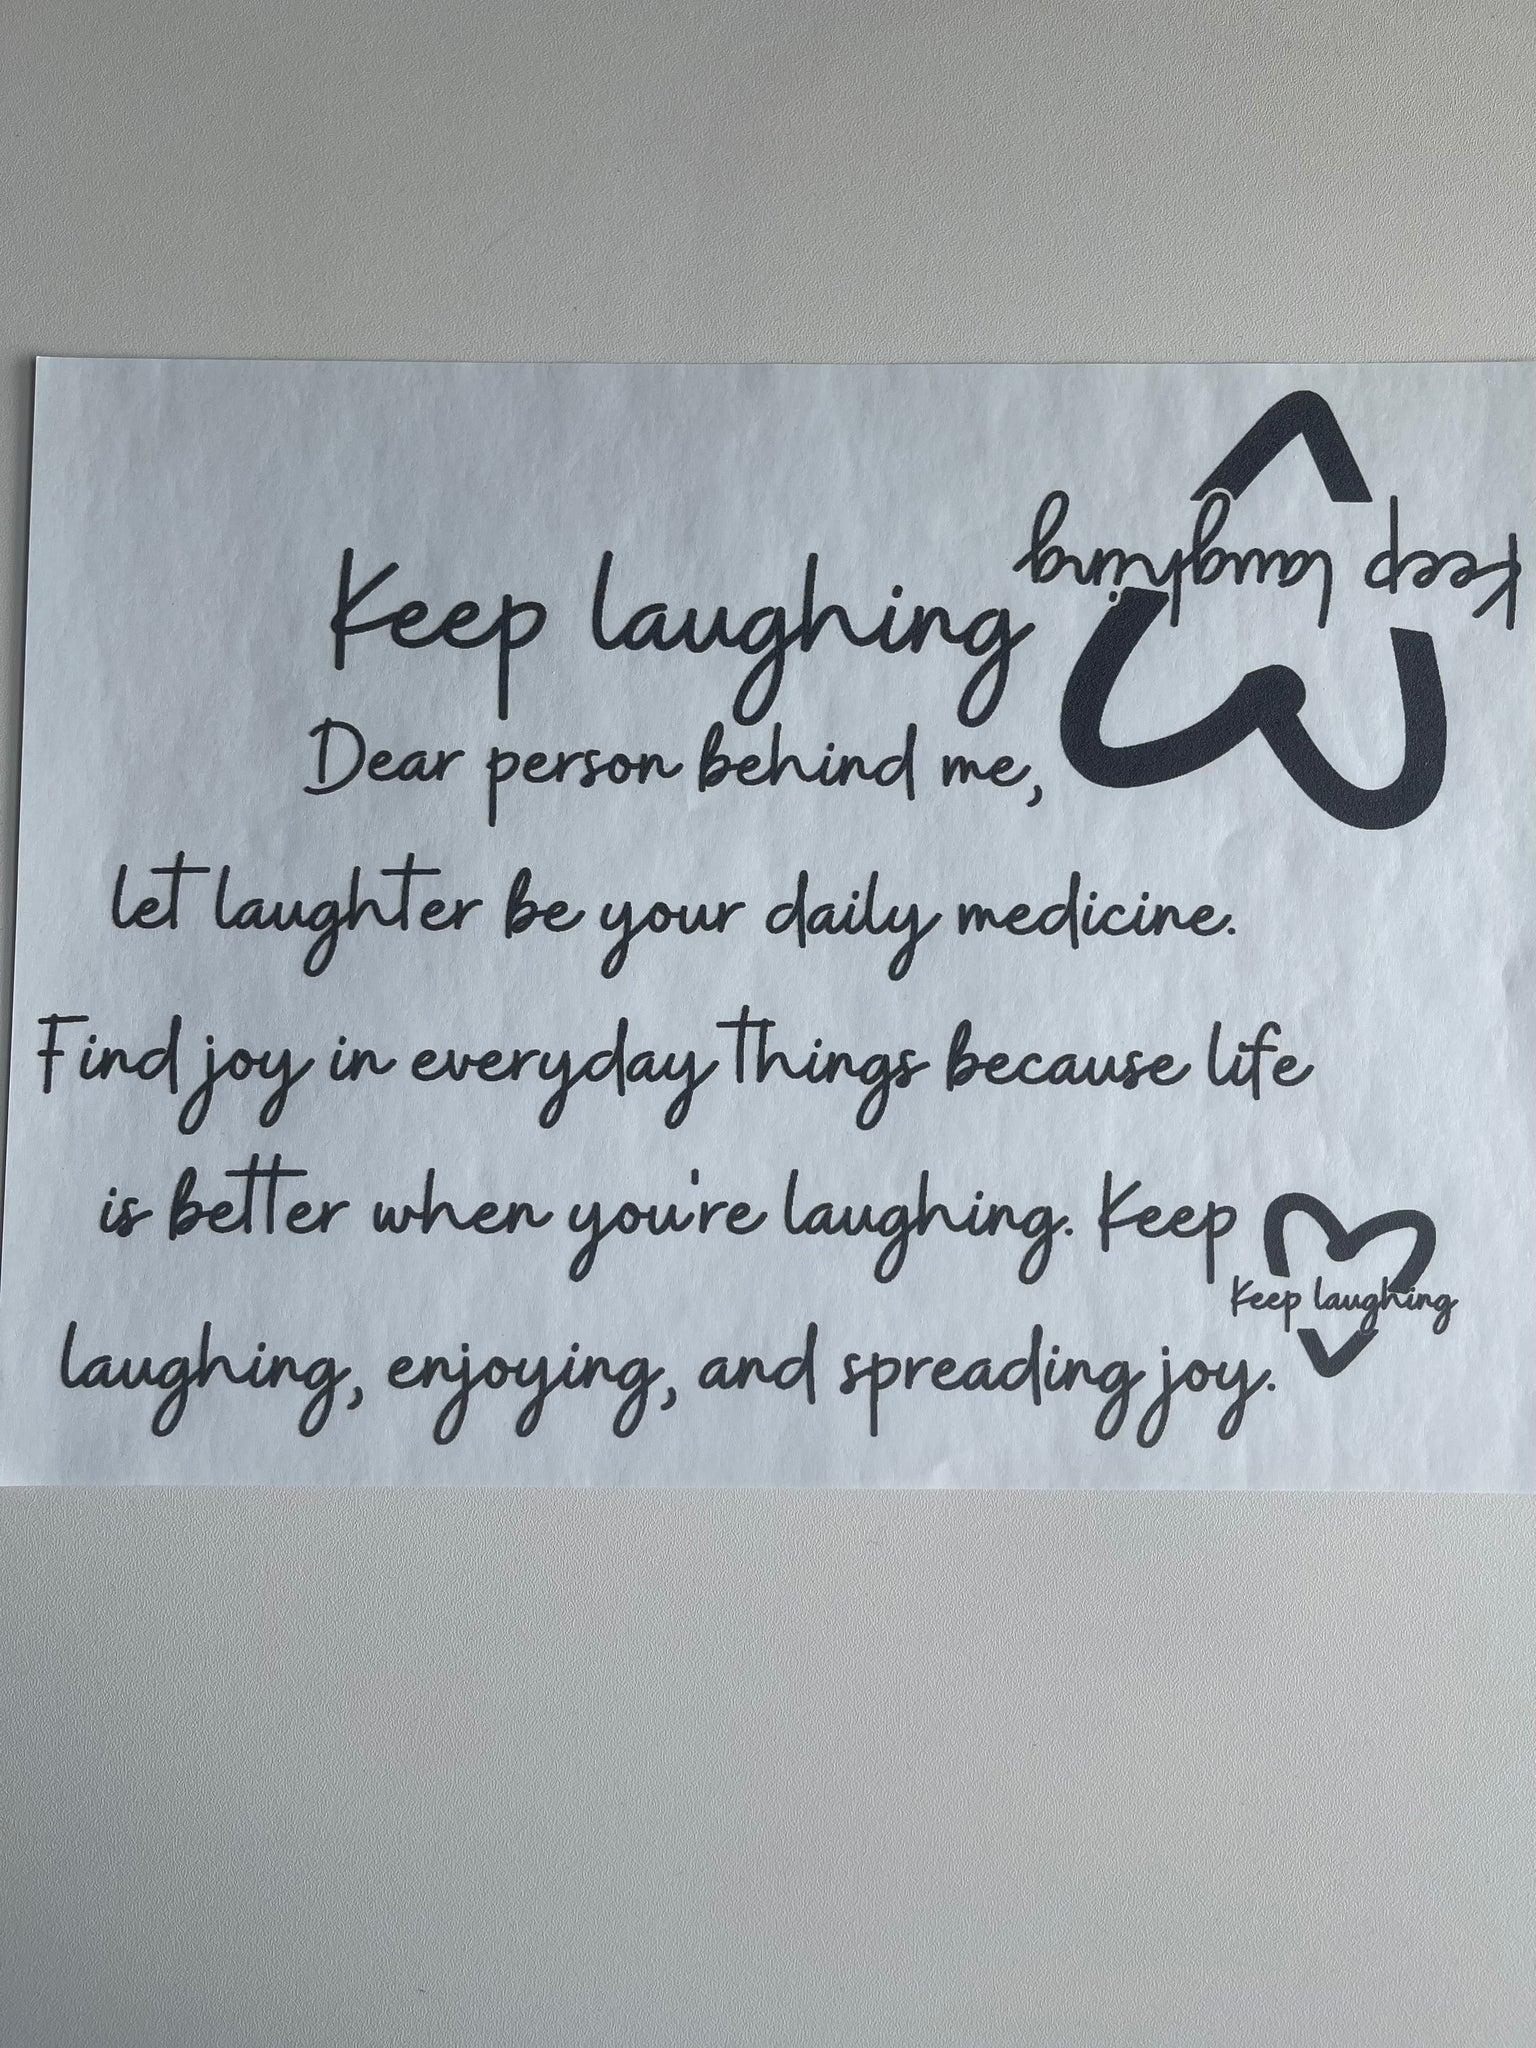 Keep laughing
Keep laughing
Dear person behind me,
let laughter be your daily medicine.
Find joy in everyday things because life
is better when you're laughing. Keep
Keep laughing
laughing, enjoying, and spreading joy.